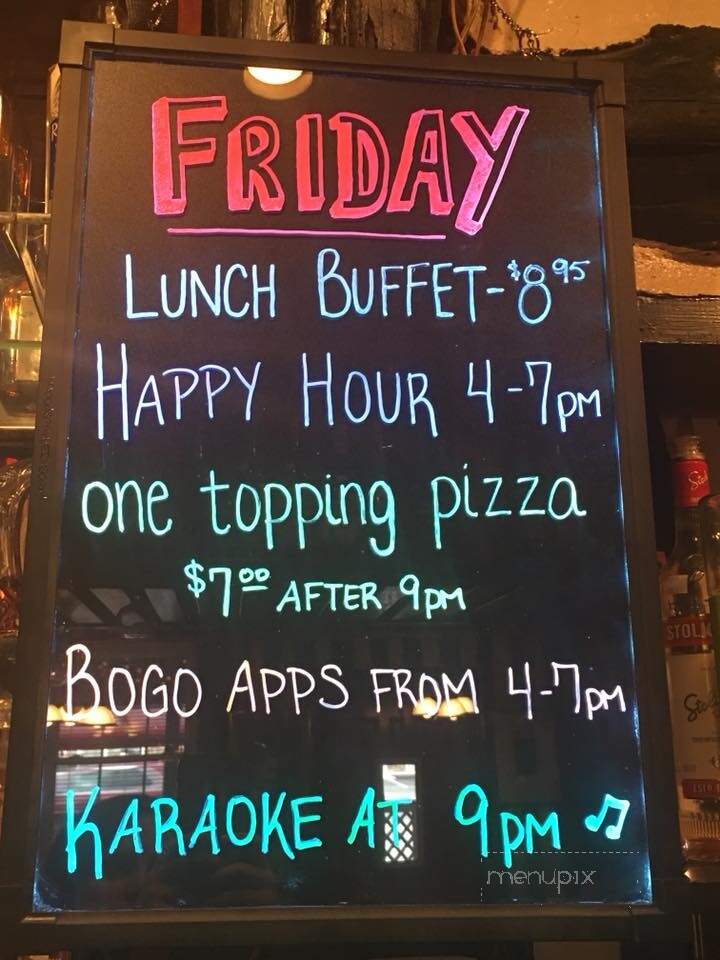 FRIDAY
LUNCH BUFFET-$8.95
HAPPY HOUR 4-7PM
one topping pizza
$7.00 AFTER 9PM
BOGO APPS FROM 4-7PM
KARAOKE AT 9PM ♫
menupix
STOLI